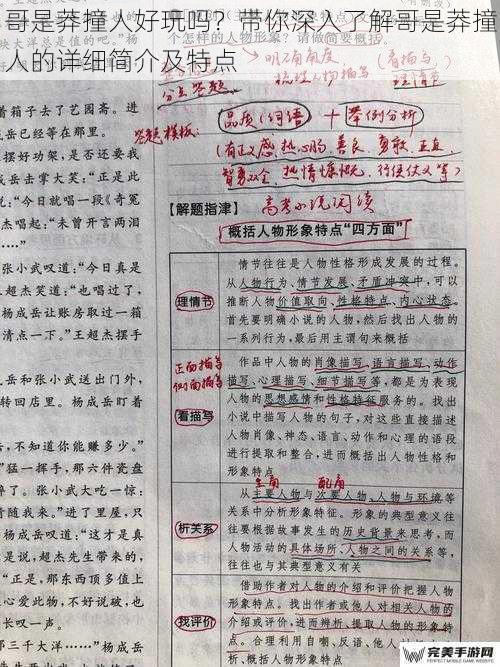 哥是莽撞人好玩吗？带你深入了解哥是莽撞
人的详细简介及特点
着箱子去了艺园斋。进
岳已经等在那里。
摆好功架，是否还要我
岳击掌大笑：“正是此
说：“今日就唱一段《奇冤
杰唱起：“未曾开言两泪
……”
张小武叹道：“今日真是
王超杰笑道：“也唱过了，
杨成岳让账房取过一箱
清点一下。”王超杰摆手
岳和张小武送出门外，
转回店里。杨成岳盯着
，不知道你能赚多少。”
猛一挥手，那六件瓷盘
碎了。张小武大吃一惊：
随我来。”进了里屋，只
杨成岳叹道：“这才是真
是说，超杰先生带来的，
“正是，那东西顶多值上
心爱此物，不好说破，也
长叹一声。
三千大洋……”杨成岳
明确角度
（看描写）
梳理人物描写
理情节
分点答题
答题模板：
品质（词语） + 举例分析
（有正义感，热心肠，善良，勇敢，正直，
智勇双全，热情慷慨，行侠仗义等）
【解题指津】 高考小说阅读
概括人物形象特点“四方面”
理情节
情节往往是人物性格形成发展的过程。
从人物行为、情节发展、矛盾冲突中，可以
推断人物价值取向、性格特点、内心状态。
首先要明确小说的人物，然后找出人物的
一系列行为，最后用主谓句来概括
正面描写
侧面描写
看描写
作品中人物的肖像描写、语言描写、动作
描写、心理描写、细节描写等，都是为表现
人物的思想感情和性格特征服务的。找出
小说中描写人物的句子，对这些直接描述
人物肖像、神态、语言、动作和心理的语段
进行提取和整合，进而概括出人物性格和
形象特点
主角 配角
析关系
从主要人物与次要人物、人物与环境等
关系中分析形象特征。形象的典型意义往
往要根据故事发生的历史背景来思考，而
人物活动的具体场所、人物之间的关系等，
往往也与其典型意义有关
找评价
借助作者对人物的介绍和评价把握人物
形象特点。找出作者或他人对相关人物的
介绍或评价，进而辨析、提取人物的形象特
点。合理利用自嘲、反语、他人
完美手游网